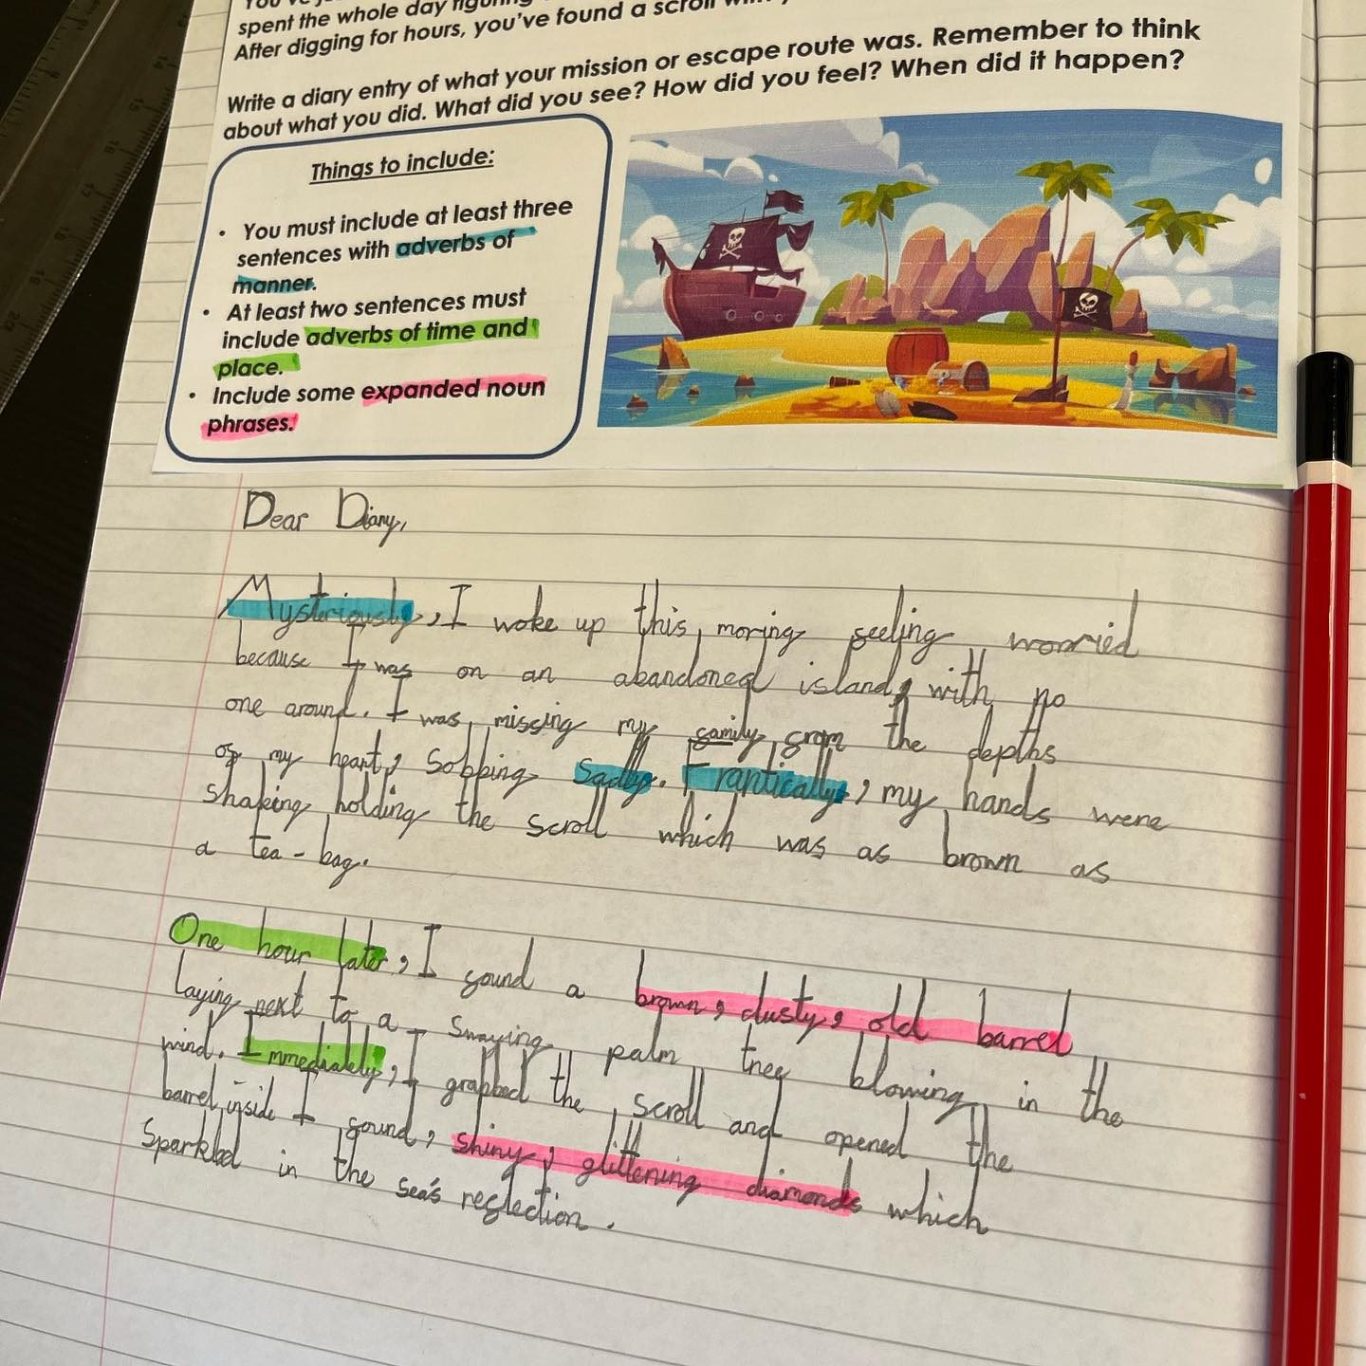 spent the whole day figuring
After digging for hours, you've found a scroll
Write a diary entry of what your mission or escape route was. Remember to think
about what you did. What did you see? How did you feel? When did it happen?
Things to include:
• You must include at least three
sentences with adverbs of
manner.
• At least two sentences must
include adverbs of time and
place.
• Include some expanded noun
phrases.
Dear Diary,
Mysteriously, I woke up this moring feeling worried
because I was on an abandoned island, with no
one around. I was missing my family from the depths
of my heart, Sobbing Sadly. Frantically, my hands were
shaking holding the scroll which was as brown as
a tea-bag.
One hour later, I found a brown, dusty, old barrel
laying next to a swaying palm tree blowing in the
wind. Immediately, I grabbed the scroll and opened the
barrel, inside I found, shiny, glittening diamonds which
Sparkled in the sea's reflection.